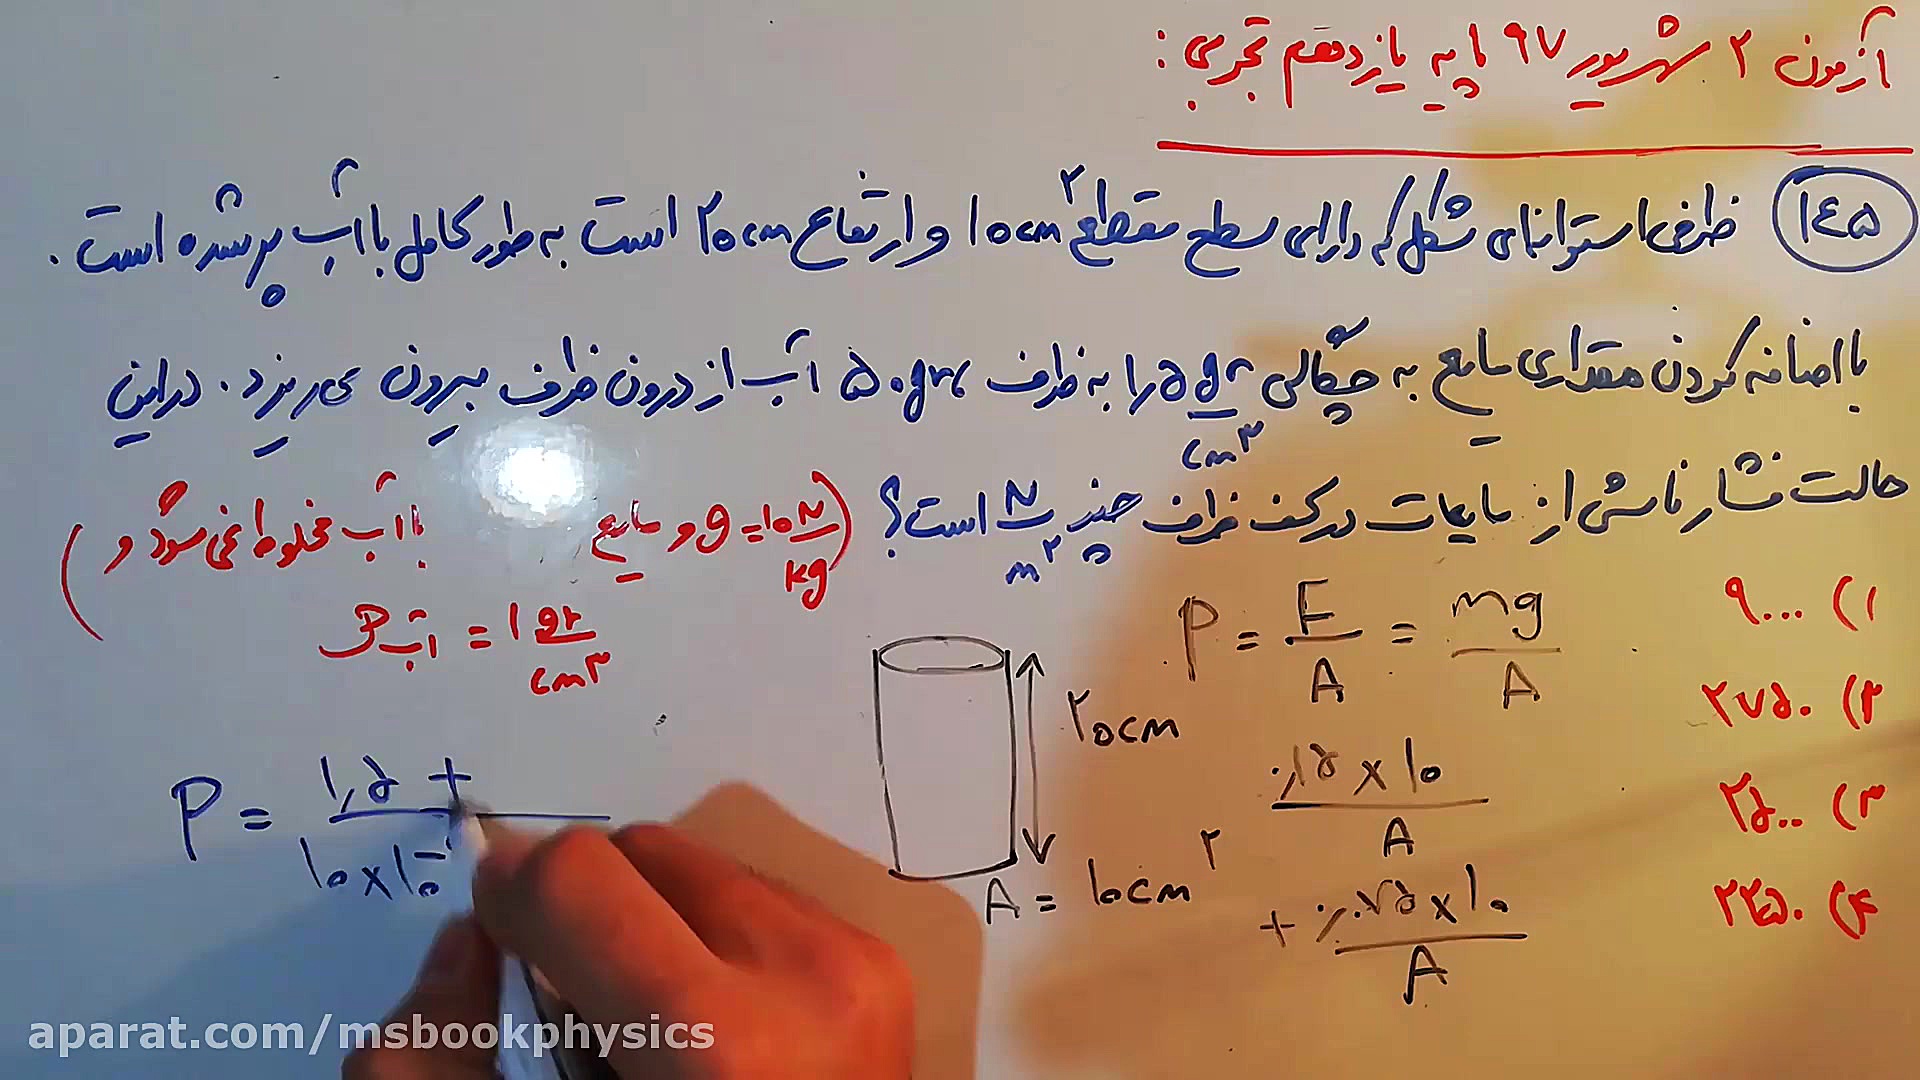 آزمون ۲ شهریور ۹۷ پایه یازدهم تجربی :
۱۴۵ ظرفی استوانه‌ای شکل که دارای سطح مقطع ۱۰cm۲ و ارتفاع ۲۰cm است به طور کامل با آب پر شده است .
با اضافه کردن مقداری مایع به چگالی ۱٫۵ gr/cm۳ را به ظرف ، ۵۰gr آب از درون ظرف بیرون می ریزد . در این
حالت فشار ناشی از مایعات در کف ظرف چند N/m۲ است ؟ ( g = ۱۰ N/kg و مایع با آب مخلوط نمی شود و
آب ρ = ۱ gr/cm۳ )
P = F/A = mg/A
۱) ۹۰۰۰
۲) ۲۷۵۰
۳) ۲۵۰۰
۴) ۲۲۵۰
۲۰cm
A = ۱۰cm۲
۰٫۱۵ × ۱۰ / A
+ ۰٫۰۷۵ × ۱۰ / A
P = ۱٫۵ + / ۱۰ × ۱۰
aparat.com/msbookphysics